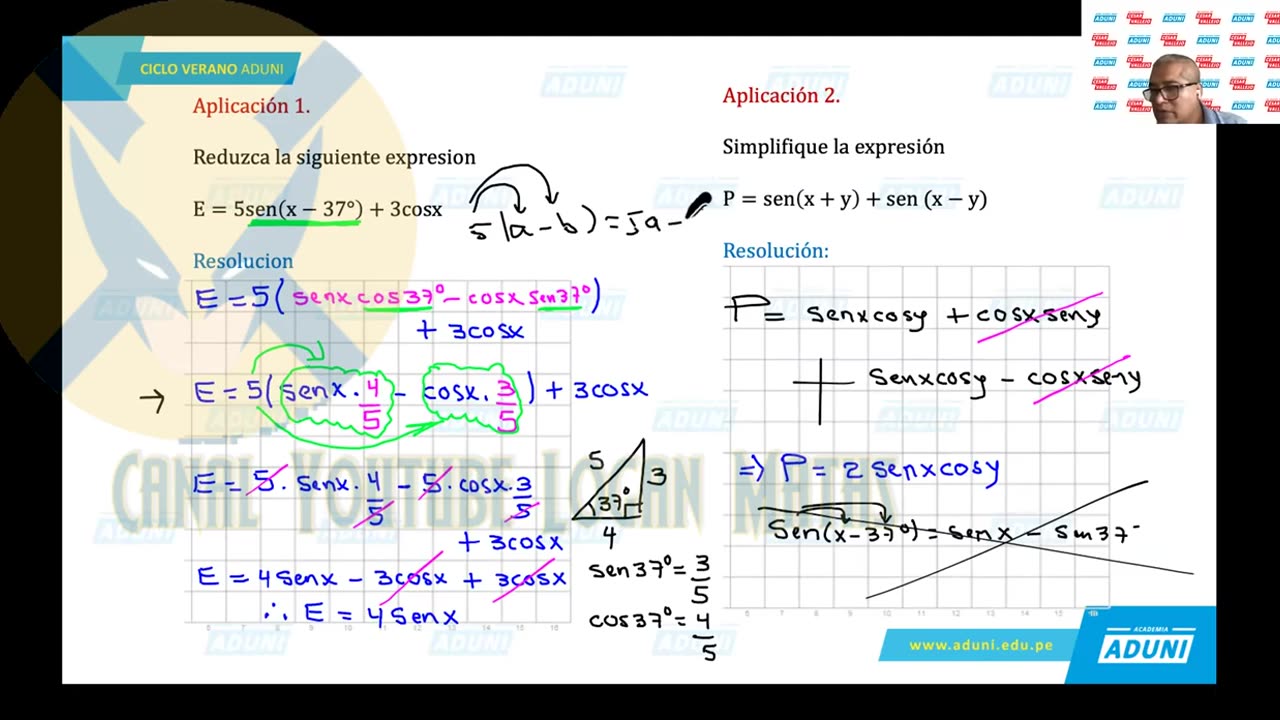 CICLO VERANO ADUNI
Aplicación 1.
Reduzca la siguiente expresion
E = 5sen(x − 37°) + 3cosx
5(a − b) = 5a −
Resolucion
E = 5(senx cos37° − cosx sen37°)
+ 3cosx
→ E = 5(senx · 4/5 − cosx · 3/5) + 3cosx
E = 5 · senx · 4/5 − 5 · cosx · 3/5
+ 3cosx
E = 4senx − 3cosx + 3cosx
∴ E = 4senx
5
3
37°
4
sen37° = 3/5
cos37° = 4/5
Aplicación 2.
Simplifique la expresión
P = sen(x + y) + sen (x − y)
Resolución:
P = senxcosy + cosxseny
+ senxcosy − cosxseny
⇒ P = 2 senxcosy
Sen(x − 37°) = senx − sen37°
CANAL YOUTUBE LOGAN MATHS
www.aduni.edu.pe
ACADEMIA
ADUNI